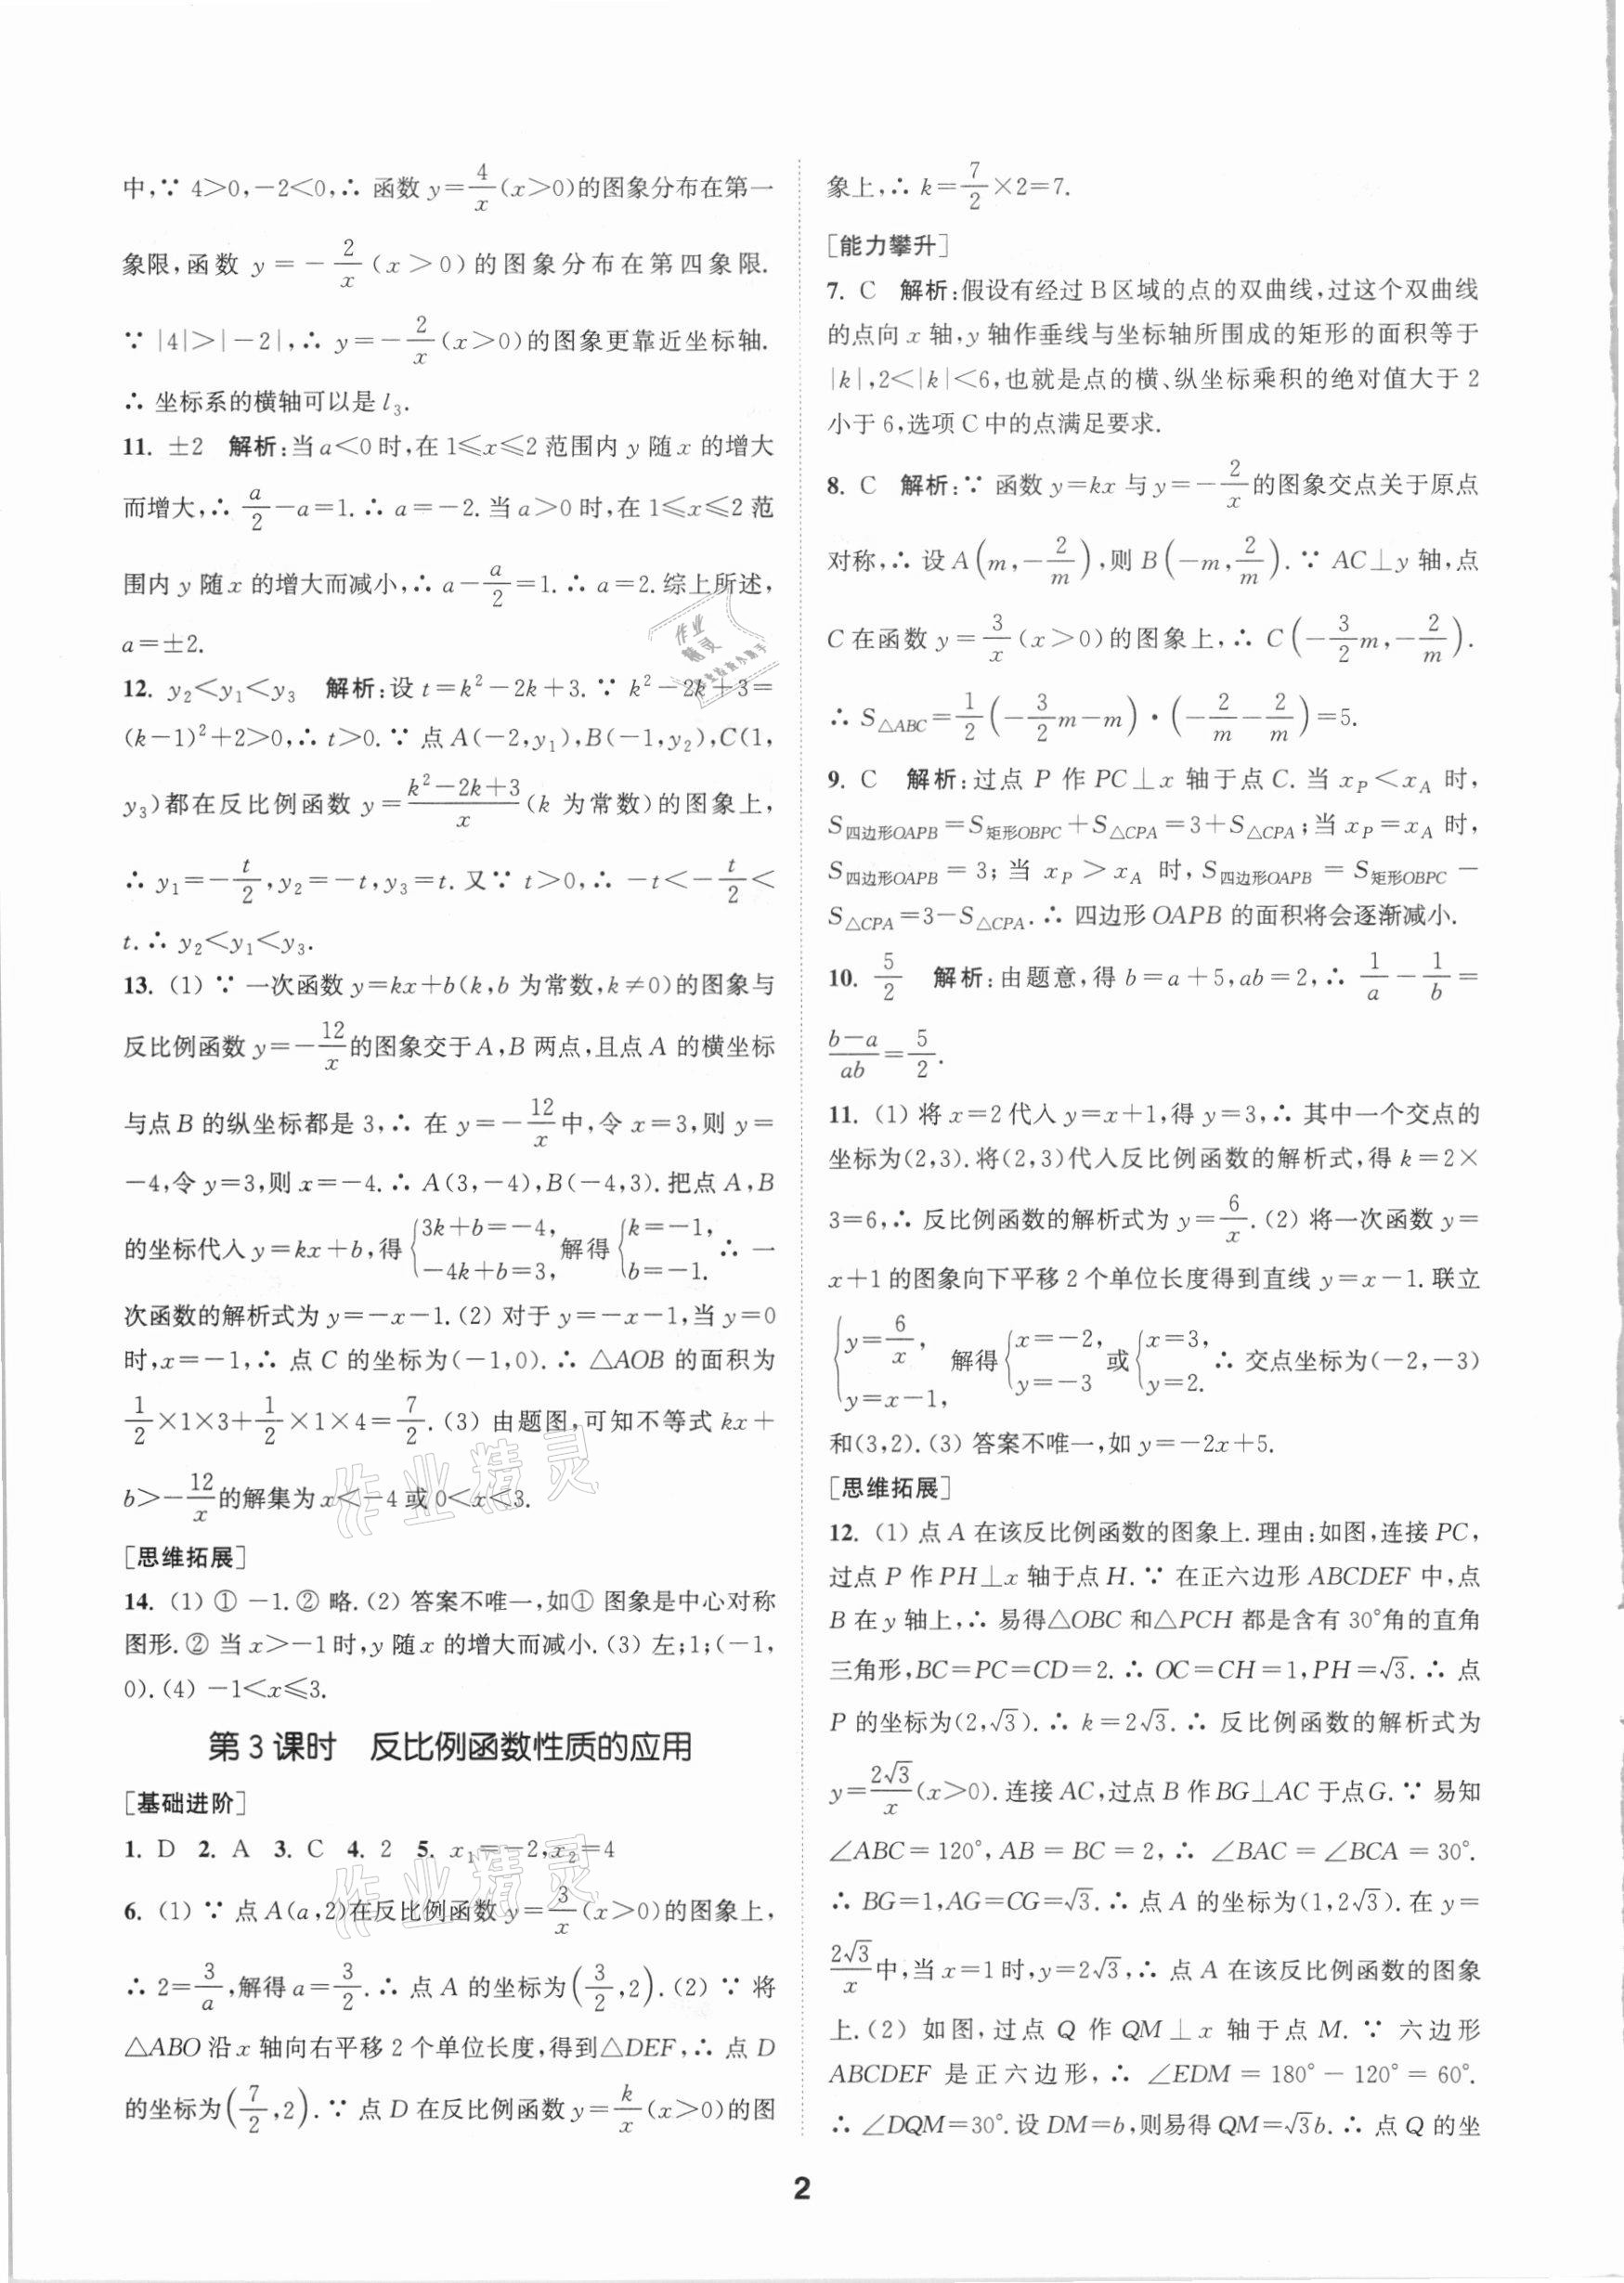 中,∵ 4>0,-2<0,∴ 函数 y=4/x(x>0)的图象分布在第一
象限,函数 y=-2/x(x>0)的图象分布在第四象限.
∵ |4|>|-2|,∴ y=-2/x(x>0)的图象更靠近坐标轴.
∴ 坐标系的横轴可以是 l₃.
11. ±2 解析:当 a<0 时,在 1≤x≤2 范围内 y 随 x 的增大
而增大,∴ a/2-a=1.∴ a=-2.当 a>0 时,在 1≤x≤2 范
围内 y 随 x 的增大而减小,∴ a-a/2=1.∴ a=2.综上所述,
a=±2.
12. y₂<y₁<y₃ 解析:设 t=k²-2k+3.∵ k²-2k+3=
(k-1)²+2>0,∴ t>0.∵ 点 A(-2,y₁),B(-1,y₂),C(1,
y₃)都在反比例函数 y=(k²-2k+3)/x(k 为常数)的图象上,
∴ y₁=-t/2,y₂=-t,y₃=t.又∵ t>0,∴ -t<-t/2<
t.∴ y₂<y₁<y₃.
13. (1) ∵ 一次函数 y=kx+b(k,b 为常数,k≠0)的图象与
反比例函数 y=-12/x的图象交于 A,B 两点,且点 A 的横坐标
与点 B 的纵坐标都是 3,∴ 在 y=-12/x中,令 x=3,则 y=
-4,令 y=3,则 x=-4.∴ A(3,-4),B(-4,3).把点 A,B
的坐标代入 y=kx+b,得{3k+b=-4, -4k+b=3,解得{k=-1, b=-1.∴ 一
次函数的解析式为 y=-x-1.(2) 对于 y=-x-1,当 y=0
时,x=-1,∴ 点 C 的坐标为(-1,0).∴ △AOB 的面积为
1/2×1×3+1/2×1×4=7/2.(3) 由题图,可知不等式 kx+
b>-12/x的解集为 x<-4 或 0<x<3.
[思维拓展]
14. (1) ① -1.② 略.(2) 答案不唯一,如① 图象是中心对称
图形.② 当 x>-1 时,y 随 x 的增大而减小.(3) 左;1;(-1,
0).(4) -1<x≤3.
第 3 课时 反比例函数性质的应用
[基础进阶]
1. D 2. A 3. C 4. 2 5. x₁=-2,x₂=4
6. (1) ∵ 点 A(a,2)在反比例函数 y=3/x(x>0)的图象上,
∴ 2=3/a,解得 a=3/2.∴ 点 A 的坐标为(3/2,2).(2) ∵ 将
△ABO 沿 x 轴向右平移 2 个单位长度,得到△DEF,∴ 点 D
的坐标为(7/2,2).∵ 点 D 在反比例函数 y=k/x(x>0)的图
象上,∴ k=7/2×2=7.
[能力攀升]
7. C 解析:假设有经过 B 区域的点的双曲线,过这个双曲线
的点向 x 轴,y 轴作垂线与坐标轴所围成的矩形的面积等于
|k|,2<|k|<6,也就是点的横、纵坐标乘积的绝对值大于 2
小于 6,选项 C 中的点满足要求.
8. C 解析:∵ 函数 y=kx 与 y=-2/x的图象交点关于原点
对称,∴ 设 A(m,-2/m),则 B(-m,2/m).∵ AC⊥y 轴,点
C 在函数 y=3/x(x>0)的图象上,∴ C(-3/2m,-2/m).
∴ S△ABC=1/2(-3/2m-m)·(-2/m-2/m)=5.
9. C 解析:过点 P 作 PC⊥x 轴于点 C.当 xP<xA 时,
S四边形OAPB=S矩形OBPC+S△CPA=3+S△CPA;当 xP=xA 时,
S四边形OAPB=3;当 xP>xA 时,S四边形OAPB=S矩形OBPC-
S△CPA=3-S△CPA.∴ 四边形 OAPB 的面积将会逐渐减小.
10. 5/2 解析:由题意,得 b=a+5,ab=2,∴ 1/a-1/b=
(b-a)/ab=5/2.
11. (1) 将 x=2代入 y=x+1,得 y=3,∴ 其中一个交点的
坐标为(2,3).将(2,3)代入反比例函数的解析式,得 k=2×
3=6,∴ 反比例函数的解析式为 y=6/x.(2) 将一次函数 y=
x+1 的图象向下平移 2 个单位长度得到直线 y=x-1.联立
{y=6/x, y=x-1,解得{x=-2, y=-3或{x=3, y=2.∴ 交点坐标为(-2,-3)
和(3,2).(3) 答案不唯一,如 y=-2x+5.
[思维拓展]
12. (1) 点 A 在该反比例函数的图象上.理由:如图,连接 PC,
过点 P 作 PH⊥x 轴于点 H.∵ 在正六边形 ABCDEF 中,点
B 在 y 轴上,∴ 易得△OBC 和△PCH 都是含有 30°角的直角
三角形,BC=PC=CD=2.∴ OC=CH=1,PH=√3.∴ 点
P 的坐标为(2,√3).∴ k=2√3.∴ 反比例函数的解析式为
y=2√3/x(x>0).连接 AC,过点 B 作 BG⊥AC 于点G.∵ 易知
∠ABC=120°,AB=BC=2,∴ ∠BAC=∠BCA=30°.
∴ BG=1,AG=CG=√3.∴ 点 A 的坐标为(1,2√3).在 y=
2√3/x中,当 x=1 时,y=2√3,∴ 点 A 在该反比例函数的图象
上.(2) 如图,过点 Q 作 QM⊥x 轴于点 M.∵ 六边形
ABCDEF 是正六边形,∴ ∠EDM=180°-120°=60°.
∴ ∠DQM=30°.设 DM=b,则易得 QM=√3b.∴ 点 Q 的坐
2
作业精灵
作业精灵
作业
精灵